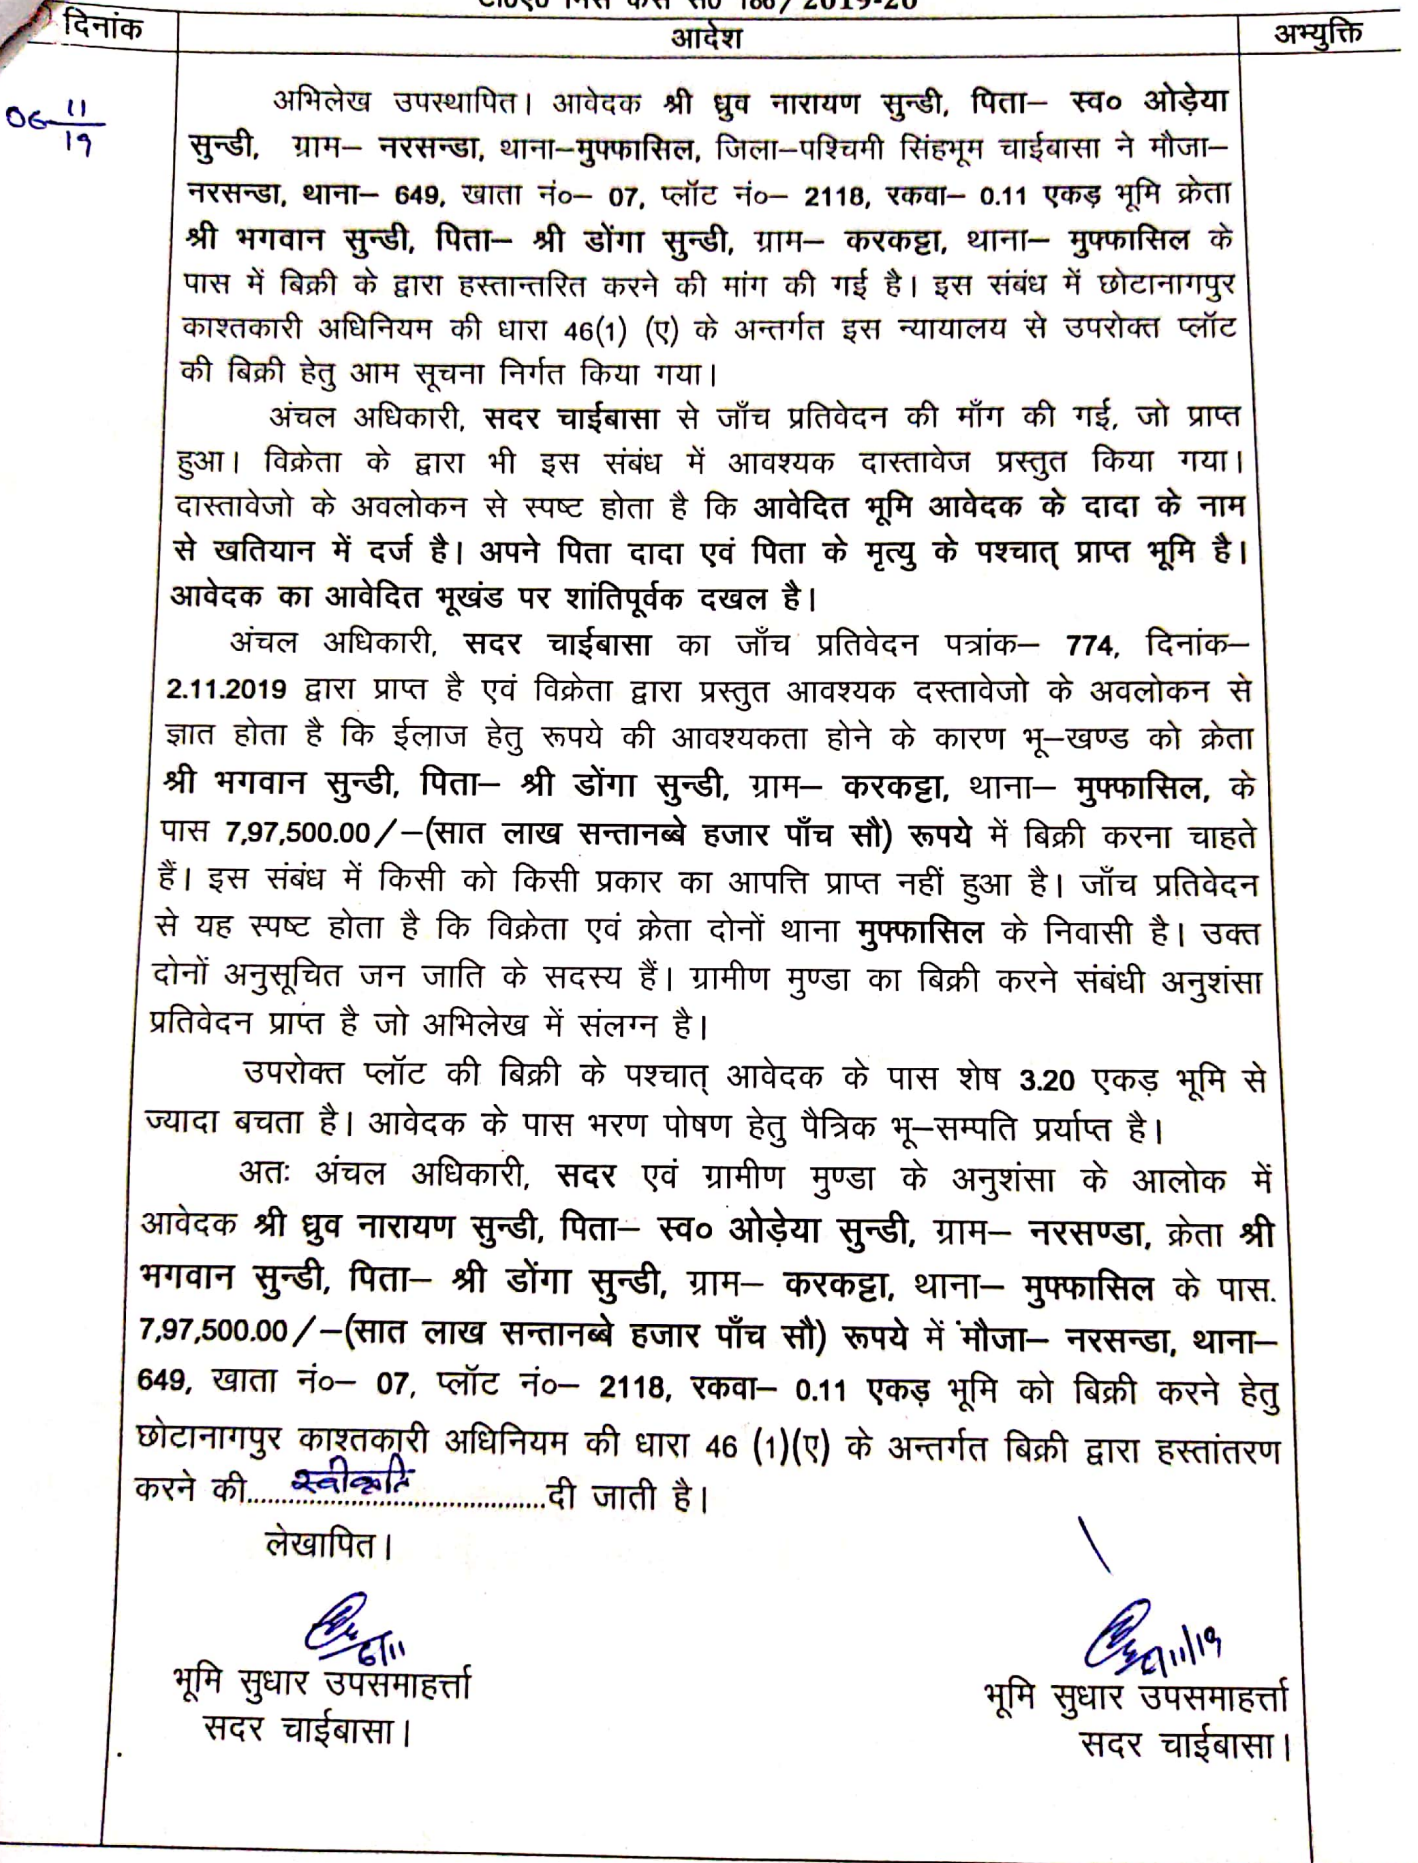 2019-20
दिनांक
आदेश
अभ्युक्ति
06 11/19
अभिलेख उपस्थापित। आवेदक श्री ध्रुव नारायण सुन्डी, पिता– स्व० ओड़ेया
सुन्डी, ग्राम– नरसन्डा, थाना–मुफ्फासिल, जिला–पश्चिमी सिंहभूम चाईबासा ने मौजा–
नरसन्डा, थाना– 649, खाता नं०– 07, प्लॉट नं०– 2118, रकवा– 0.11 एकड़ भूमि क्रेता
श्री भगवान सुन्डी, पिता– श्री डोंगा सुन्डी, ग्राम– करकट्टा, थाना– मुफ्फासिल के
पास में बिक्री के द्वारा हस्तान्तरित करने की मांग की गई है। इस संबंध में छोटानागपुर
काश्तकारी अधिनियम की धारा 46(1) (ए) के अन्तर्गत इस न्यायालय से उपरोक्त प्लॉट
की बिक्री हेतु आम सूचना निर्गत किया गया।
अंचल अधिकारी, सदर चाईबासा से जाँच प्रतिवेदन की माँग की गई, जो प्राप्त
हुआ। विक्रेता के द्वारा भी इस संबंध में आवश्यक दास्तावेज प्रस्तुत किया गया।
दास्तावेजो के अवलोकन से स्पष्ट होता है कि आवेदित भूमि आवेदक के दादा के नाम
से खतियान में दर्ज है। अपने पिता दादा एवं पिता के मृत्यु के पश्चात् प्राप्त भूमि है।
आवेदक का आवेदित भूखंड पर शांतिपूर्वक दखल है।
अंचल अधिकारी, सदर चाईबासा का जाँच प्रतिवेदन पत्रांक– 774, दिनांक–
2.11.2019 द्वारा प्राप्त है एवं विक्रेता द्वारा प्रस्तुत आवश्यक दस्तावेजो के अवलोकन से
ज्ञात होता है कि ईलाज हेतु रूपये की आवश्यकता होने के कारण भू–खण्ड को क्रेता
श्री भगवान सुन्डी, पिता– श्री डोंगा सुन्डी, ग्राम– करकट्टा, थाना– मुफ्फासिल, के
पास 7,97,500.00/–(सात लाख सन्तानब्बे हजार पाँच सौ) रूपये में बिक्री करना चाहते
हैं। इस संबंध में किसी को किसी प्रकार का आपत्ति प्राप्त नहीं हुआ है। जाँच प्रतिवेदन
से यह स्पष्ट होता है कि विक्रेता एवं क्रेता दोनों थाना मुफ्फासिल के निवासी है। उक्त
दोनों अनुसूचित जन जाति के सदस्य हैं। ग्रामीण मुण्डा का बिक्री करने संबंधी अनुशंसा
प्रतिवेदन प्राप्त है जो अभिलेख में संलग्न है।
उपरोक्त प्लॉट की बिक्री के पश्चात् आवेदक के पास शेष 3.20 एकड़ भूमि से
ज्यादा बचता है। आवेदक के पास भरण पोषण हेतु पैत्रिक भू–सम्पति प्रर्याप्त है।
अतः अंचल अधिकारी, सदर एवं ग्रामीण मुण्डा के अनुशंसा के आलोक में
आवेदक श्री ध्रुव नारायण सुन्डी, पिता– स्व० ओड़ेया सुन्डी, ग्राम– नरसण्डा, क्रेता श्री
भगवान सुन्डी, पिता– श्री डोंगा सुन्डी, ग्राम– करकट्टा, थाना– मुफ्फासिल के पास.
7,97,500.00/–(सात लाख सन्तानब्बे हजार पाँच सौ) रूपये में मौजा– नरसन्डा, थाना–
649, खाता नं०– 07, प्लॉट नं०– 2118, रकवा– 0.11 एकड़ भूमि को बिक्री करने हेतु
छोटानागपुर काश्तकारी अधिनियम की धारा 46 (1)(ए) के अन्तर्गत बिक्री द्वारा हस्तांतरण
करने की....स्वीकृति....दी जाती है।
लेखापित।
6/11
6/11/19
भूमि सुधार उपसमाहर्त्ता
भूमि सुधार उपसमाहर्त्ता
सदर चाईबासा।
सदर चाईबासा।